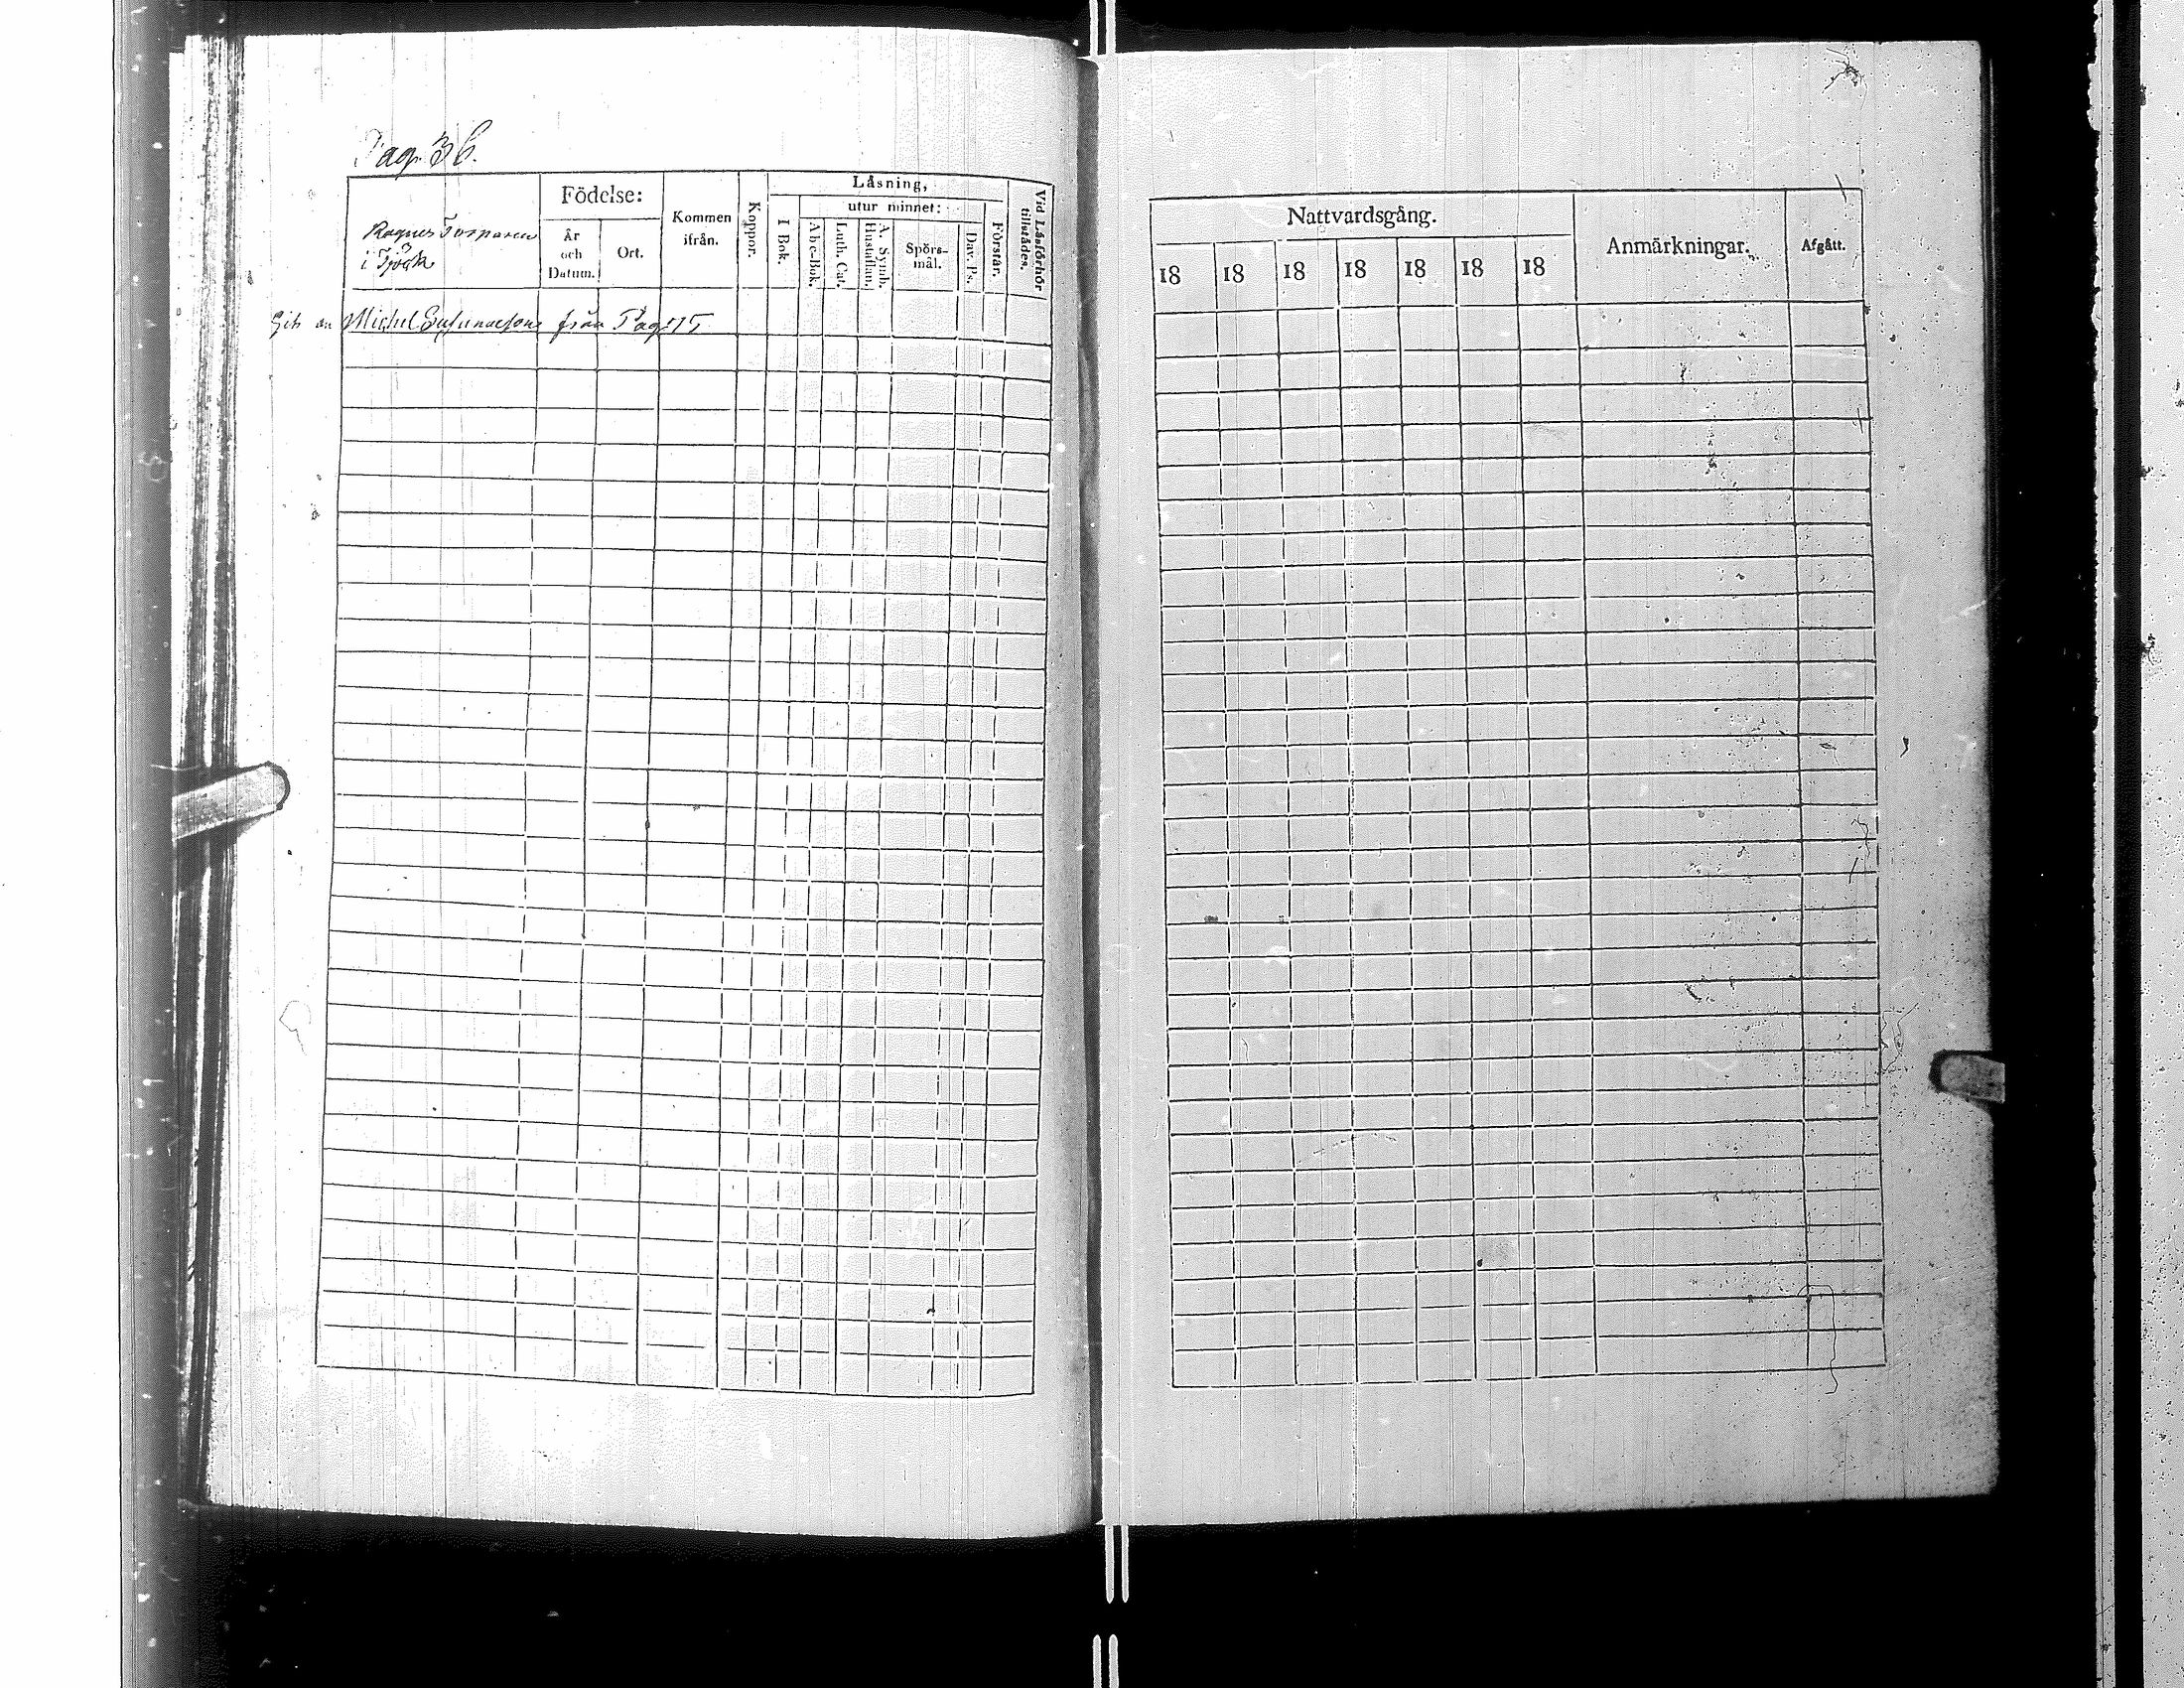 Pag. 36.
i Tjöck
Födelse:
År
och
Datum.
Ort.
Kommen
ifrån.
Koppor.
Låsning,
I Bok.
utur minnet:
Abc-Bok.
Luth. Cat.
A. Symb.
Hustaflan.
Spörs-
mål.
Dav. Ps.
Förstår.
Vid Läsförhör
tillstådes.
Michel från Pag: 175
Nattvardsgång.
18 18 18 18 18 18 18
Anmärkningar.
Afgått.